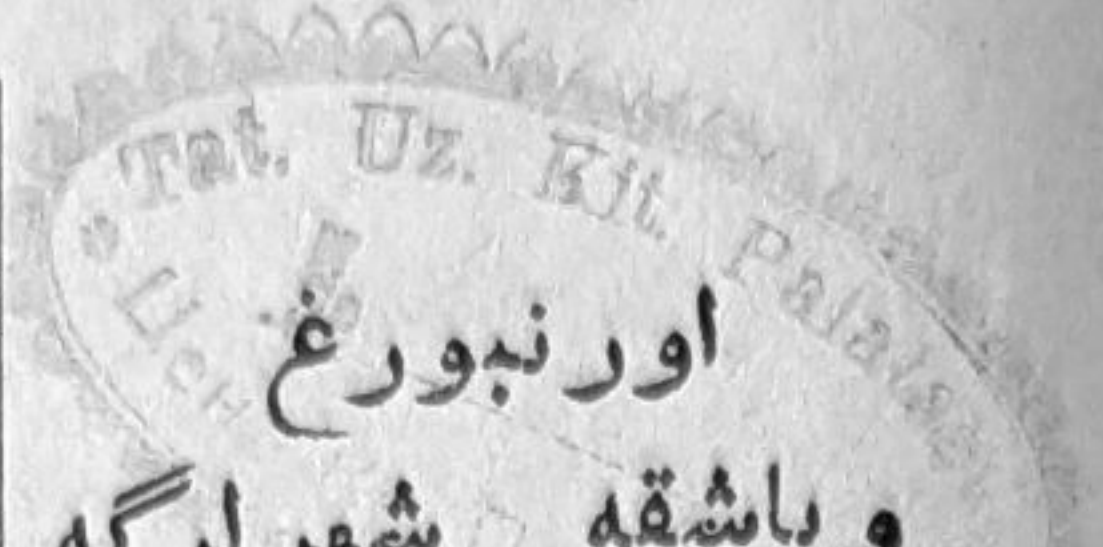 Tat. Uz. Kit. Palatası
اورنبورغ
و باشقه شهرلرگه